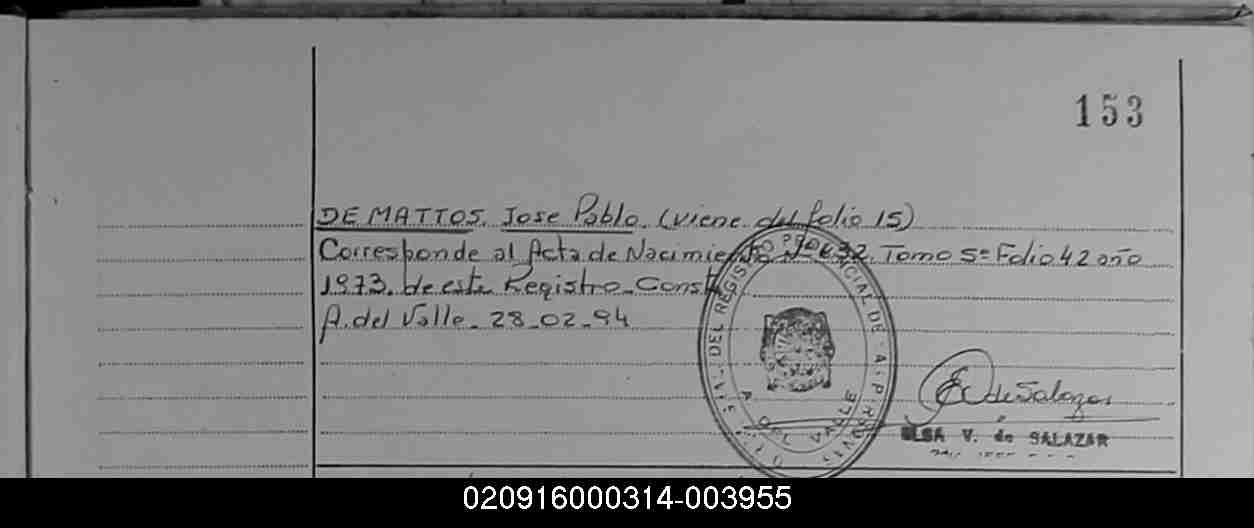 153
DE MATTOS, Jose Pablo. (viene del folio 15)
Corresponde al Acta de Nacimiento Nº 432. Tomo 5º Folio 42 año
1973. de este Registro_Conste
A. del Valle_ 28_02_94
DEL REGISTRO PROVINCIAL DE
A. DEL VALLE
de Salazar
ELSA V. de SALAZAR
020916000314-003955